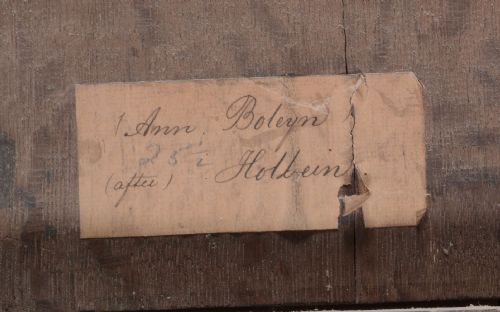 Ann Boleyn
(after) Holbein